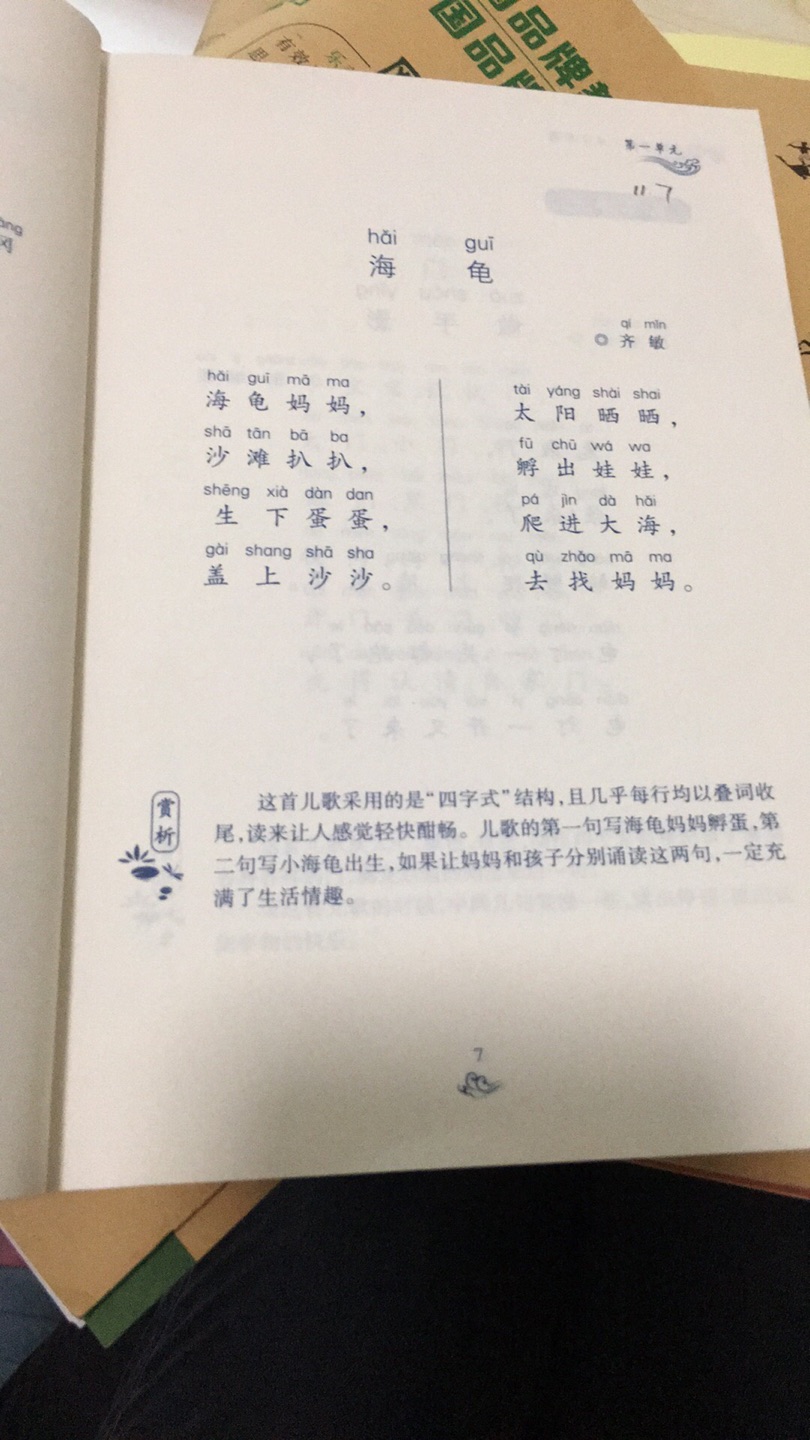 国品牌
有效
第一单元
117
hǎi guī
海 龟
qí mǐn
◎ 齐 敏
hǎi guī mā ma
海 龟 妈 妈，
shā tān bā ba
沙 滩 扒 扒，
shēng xià dàn dan
生 下 蛋 蛋，
gài shang shā sha
盖 上 沙 沙。
tài yáng shài shai
太 阳 晒 晒，
fū chū wá wa
孵 出 娃 娃，
pá jìn dà hǎi
爬 进 大 海，
qù zhǎo mā ma
去 找 妈 妈。
赏析
这首儿歌采用的是“四字式”结构，且几乎每行均以叠词收
尾，读来让人感觉轻快酣畅。儿歌的第一句写海龟妈妈孵蛋，第
二句写小海龟出生，如果让妈妈和孩子分别诵读这两句，一定充
满了生活情趣。
7